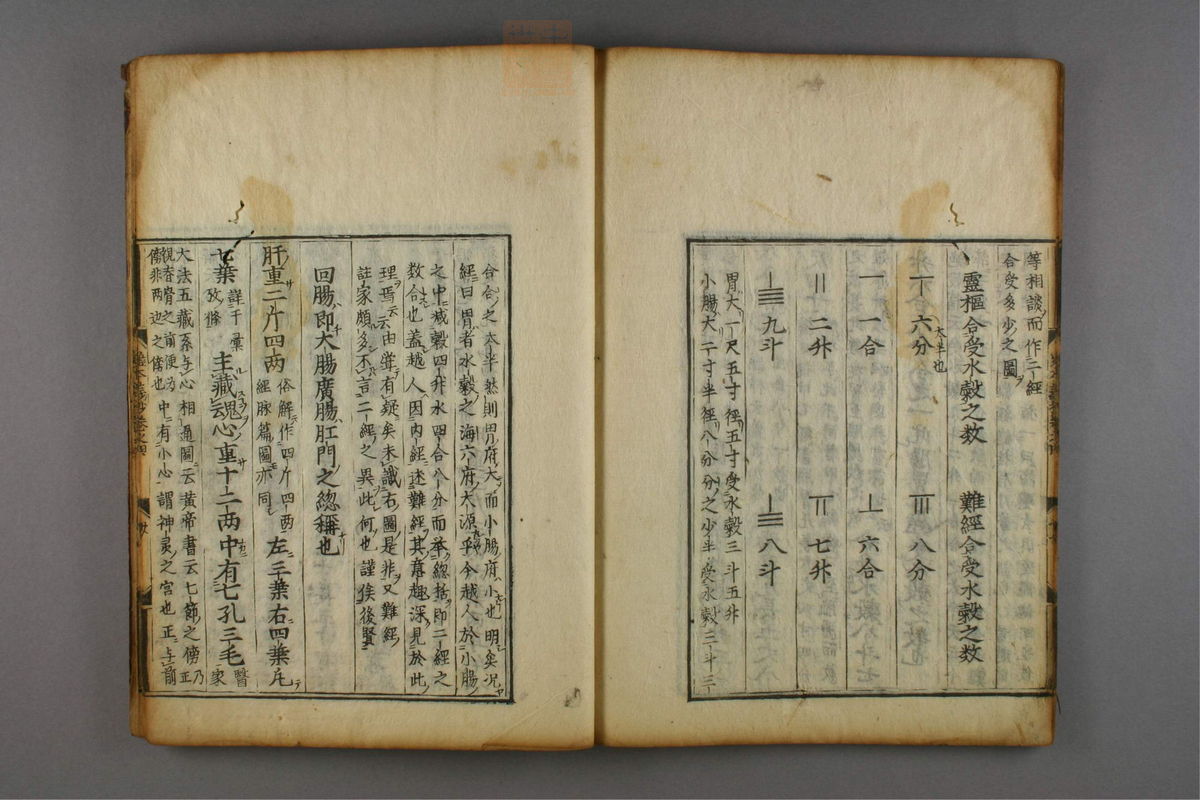 等相談而作二經
合受多少之圖
靈樞合受水穀之数　難經合受水穀之数
丅六分大半也　𝍢八分
一一合　丄六合
〢二升　𝍡七升
九斗　八斗
胃大一尺五寸径五寸受水穀三斗五升
小腸大二寸半径八分分之少半受水穀二斗三
合合之太半然則胃府大而小腸府小也明矣况
經曰胃者水穀之海六府大源乎今越人於小腸
之中减穀四升水四合八分而举總括即二經之
数合也盖越人因内經述難經其意趣深見於此
理焉云由導有疑矣未識右圖是非又難經
註家頗多不言二經之異此何也謹俟後賢
回腸即大腸廣腸肛門之總稱也
肝重二斤四两俗解作四斤四两經脉篇圖亦同左三葉右四葉凡
七葉詳于彙攷條主藏魂心重十二两中有七孔三毛醫家
大法五藏系与心相通圖云黄帝書云七節之傍乃
視脊膂之前便为中有小心謂神灵之宮也正与前
傍非两边之傍也